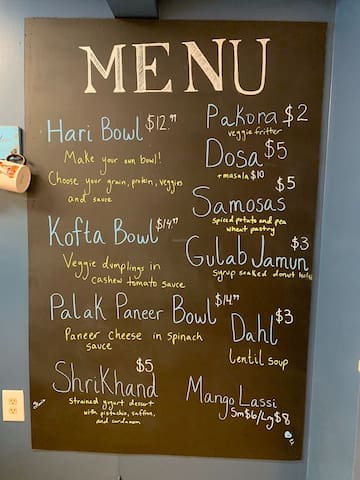 MENU
Hari Bowl $12.99
Make your own bowl!
Choose your grain, protein, veggies
and sauce
Kofta Bowl $14.99
Veggie dumplings in
cashew tomato sauce
Palak Paneer Bowl $14.99
Paneer cheese in spinach
sauce
ShriKhand $5
strained yogurt dessert
with pistachio, saffron,
and cardamom
Pakora $2
veggie fritter
Dosa $5
+masala $10
Samosas $5
spiced potato and pea
wheat pastry
Gulab Jamun $3
syrup soaked donut holes
Dahl $3
lentil soup
Mango Lassi
Sm $6/Lg $8